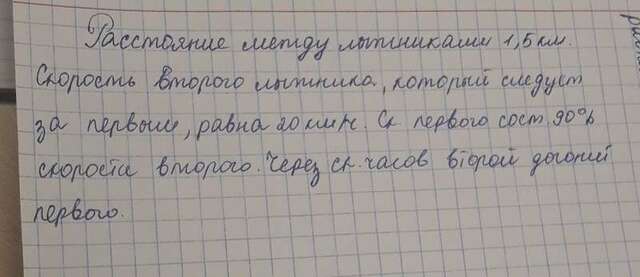 Расстояние между лыжниками 1,5 км.
Скорость второго лыжника, который следует
за первым, равна 20 км/ч. Ск первого сост. 90%
скорости второго. Через ск. часов второй догонит
первого.